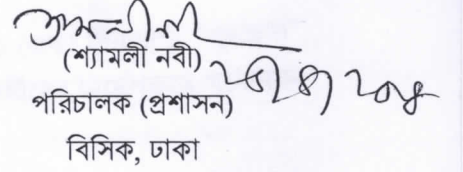 (শ্যামলী নবী)
পরিচালক (প্রশাসন)
বিসিক, ঢাকা